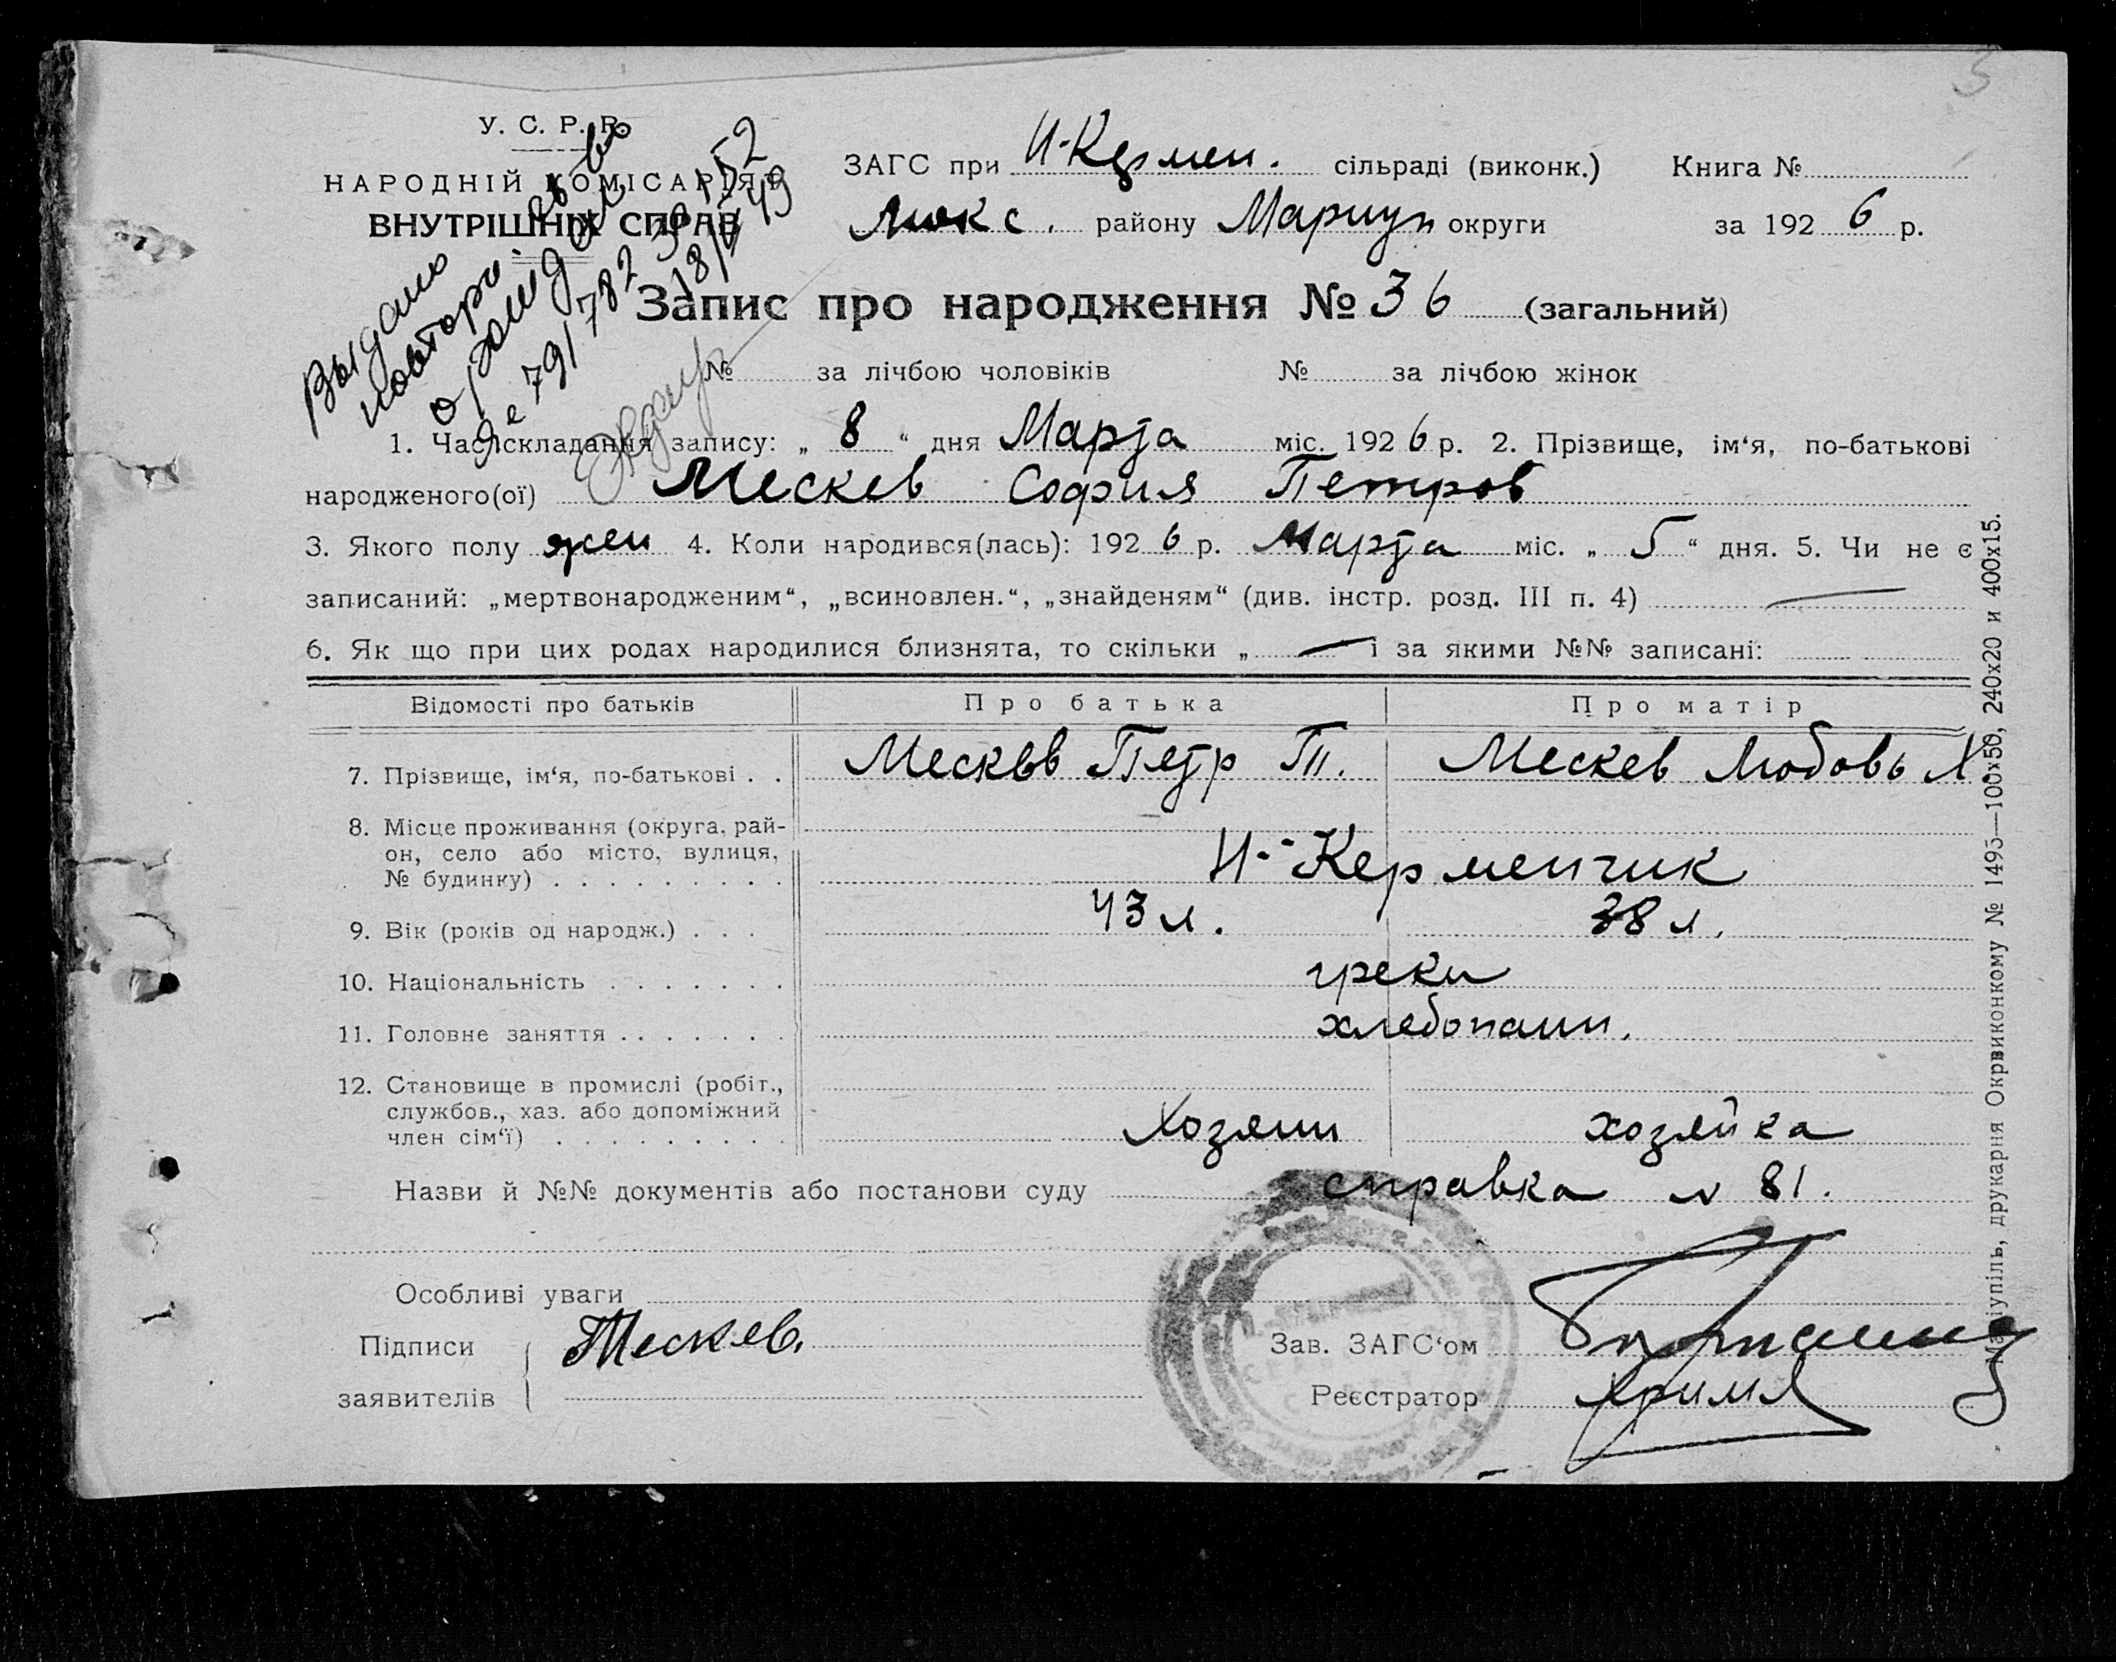 3
У. С. Р. Р.
НАРОДНІЙ КОМІСАРІЯТ
ВНУТРІШНІХ СПРАВ
Выдано
повторн. св-во
о рожд
791782
18/ 49
ЗАГС при Н-Кермен. сільраді (виконк.) Книга №
Люкс. району Мариуп округи за 1926 р.
Запис про народження № 36 (загальний)
№ за лічбою чоловіків № за лічбою жінок
1. Час складання запису: „ 8 “ дня Марта міс. 1926 р. 2. Прізвище, ім‘я, по-батькові
народженого(ої) Мескев София Петров
3. Якого полу жен 4. Коли народився(лась): 1926 р. Марта міс. „ 5 “ дня. 5. Чи не є
записаний: „мертвонародженим“, „всиновлен.“, „знайденям“ (див. інстр. розд. III п. 4) —
6. Як що при цих родах народилися близнята, то скільки „ — і за якими №№ записані:
Відомості про батьків Про батька Про матір
7. Прізвище, ім‘я, по-батькові . . Мескев Петр П. Мескев Любовь Х.
8. Місце проживання (округа, рай-
он, село або місто, вулиця,
№ будинку) . . . . . . . . . Н-Керменчик
9. Вік (років од народж.) . . . 43 л. 38 л.
10. Національність . . . . . . . греки
11. Головне заняття . . . . . . . хлебопаши.
12. Становище в промислі (робіт.,
службов., хаз. або допоміжний
член сім‘ї) . . . . . . . . . Хозяин хозяйка
Назви й №№ документів або постанови суду справка № 81.
Особливі уваги
Підписи Мескев.
заявителів
Зав. ЗАГС‘ом
Реєстратор
Маріупіль, друкарня Окрвиконкому № 1495—100х50, 240х20 и 400х15.